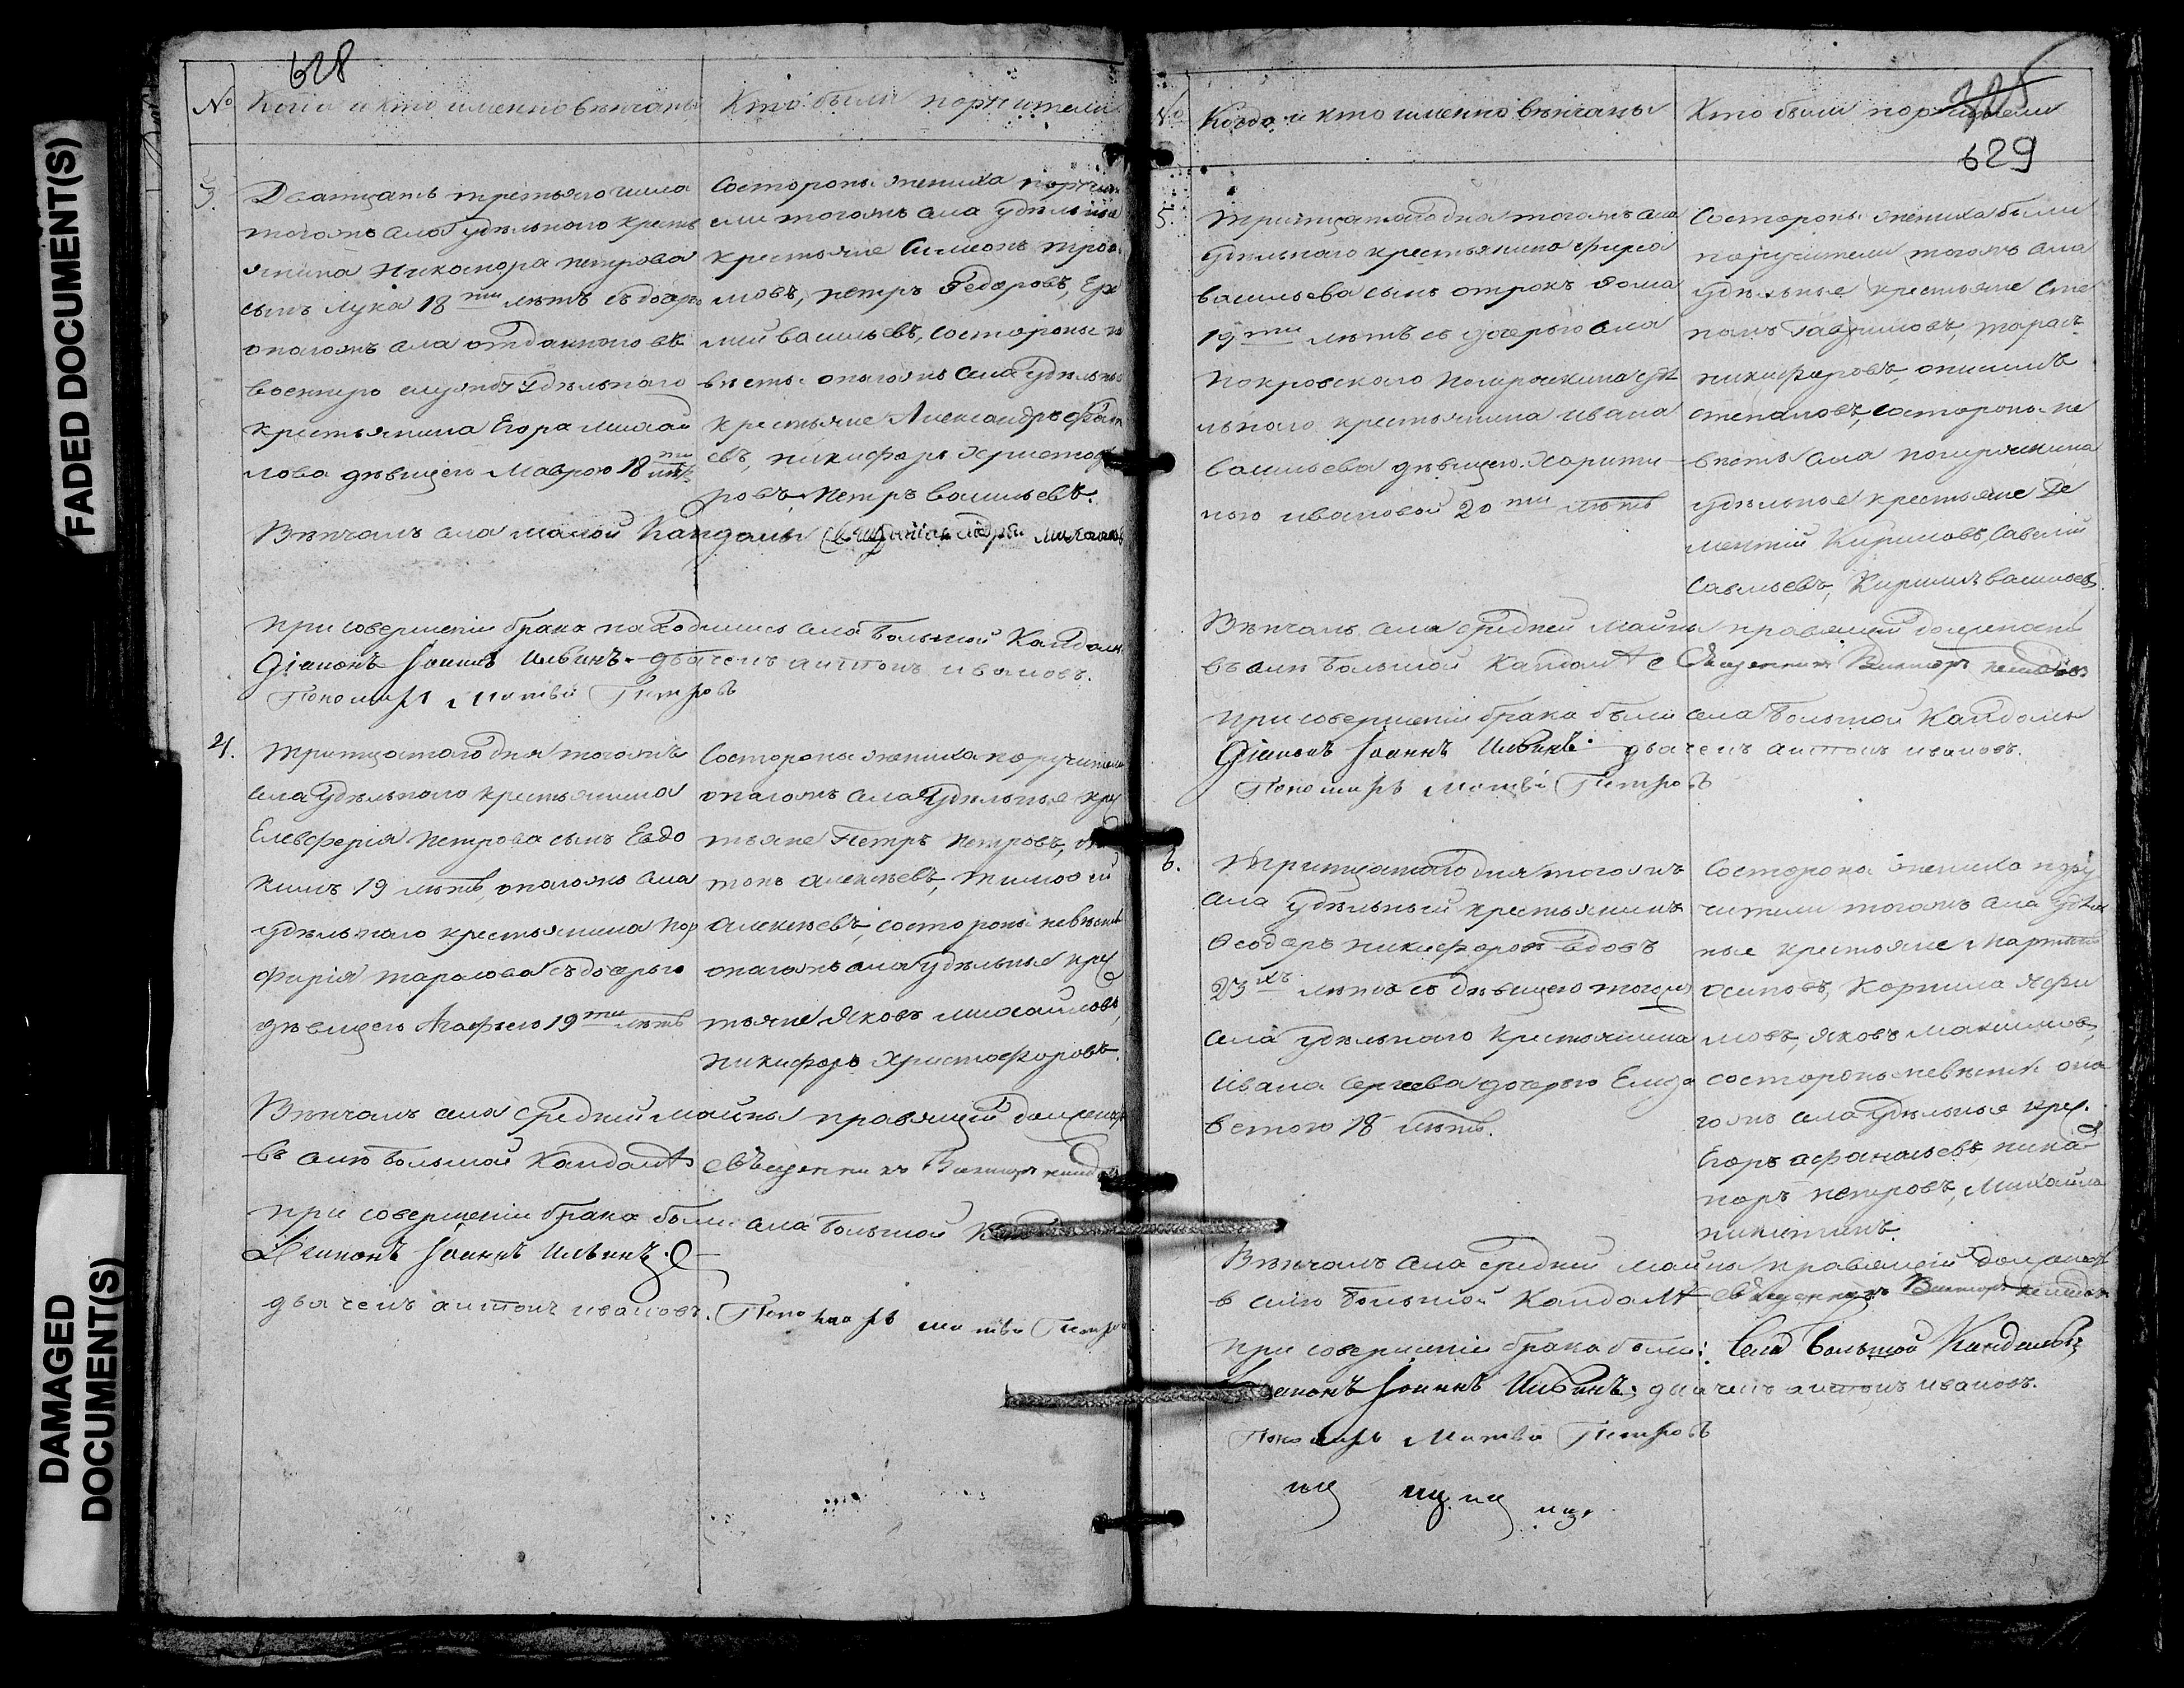 FADED DOCUMENT(S)
DAMAGED
DOCUMENT(S)
628
№
Когда и кто именно венчаны
Кто были поручители
3.
Дватцать третьяго числа
тогожъ села удѣльного кресть
янина Никанора петрова
сынъ Лука 18 ти лѣтъ съ дочерь
оногожъ села отданного въ
военную службу удѣльного
крестьянина Егора михай
лова дѣвицею Маврою 18 ти лѣтъ
Состороны жениха поручи
ели тогожъ села удѣльные
крестьяне Симеонъ троѳи
мовъ, петръ Ѳедоровъ,
васильевъ, состороны не
вѣсты оногожъ села удѣльные
крестьяне Александръ
евъ, никифоръ Христофо
ровъ, Петръ васильевъ.
Вѣнчалъ села малой Кандалы Священникъ
при совершеніи брака находились села большой Кандалы
Діаконъ Іоаннъ Ильинъ. дьячекъ антонъ ивановъ.
Пономарь Матвѣй Петровъ
4.
Тритцатого дня тогожъ
села удѣльного крестьянина
Елевѳерія петрова сынъ Евдо
кимъ 19 лѣтъ, оногожъ села
удѣльного крестьянина пор
фирія тарасова съ дочерью
дѣвицею Агафьею 19 ти лѣтъ
Состороны жениха поручители
оногожъ села удѣльные крес
тьяне Петръ петровъ,
алексѣевъ, тимоѳей
алексѣевъ, состороны невѣсты
оногожъ села удѣльные крес
тьяне Яковъ михайловъ,
никифоръ Христофоровъ.
Вѣнчалъ села средней майны правящій должность
въ селѣ большой Кандалѣ священникъ Викторъ
при совершеніи брака были села большой
Діаконъ Іоаннъ Ильинъ.
дьячекъ антонъ ивановъ. Пономарь матвѣй Петровъ
325
629
№
Когда и кто именно вѣнчаны
Кто были поручители
5.
Тритцатого дня тогожъ села
удѣльного крестьянина Фирса
васильева сынъ отрокъ Ѳома
19 ти лѣтъ съ дочерью села
покровского погорошкина удѣ
льного крестьянина ивана
васильева дѣвицею Харити
ною ивановой 20 ти лѣтъ
Состороны жениха были
поручители тогожъ села
удѣльные крестьяне Сте
панъ Гавриловъ, тарасъ
никифоровъ, онисимъ
степановъ, состороны не
вѣсты села погорошкина
удѣльные крестьяне Де
ментій Кириловъ, Савелій
Савельевъ, Кирилъ васильевъ.
Вѣнчалъ села средней Майны правящій должность
въ селѣ большой Кандалѣ Священникъ Викторъ
при совершеніи брака были села большой Кандалы
Діаконъ Іоаннъ Ильинъ. дьячекъ антонъ ивановъ.
Пономарь Матвѣй Петровъ
6.
Тритцатого дня тогожъ
села удѣльный крестьянинъ
Ѳеодоръ никифоровъ вдовъ
23 хъ лѣтъ съ дѣвицею тогожъ
села удѣльного крестьянина
ивана Сергеева дочерью Елиза
ветою 18 лѣтъ.
Состороны жениха пору
чители тогожъ села удѣль
ные крестьяне Мартынъ
осиповъ, Корнила ефи
мовъ, Яковъ Максимовъ,
состороны невѣсты оно
гожъ села удѣльные крес.
Егоръ афанасьевъ, ника
норъ петровъ, Михайла
никитинъ.
Вѣнчалъ села средней майны правящій должность
в селѣ большой Кандалѣ Священникъ Викторъ
при совершеніи брака были: Села большой Кандалы
Діаконъ Іоаннъ Ильинъ; дьячекъ антонъ ивановъ.
Пономарь Матвѣй Петровъ